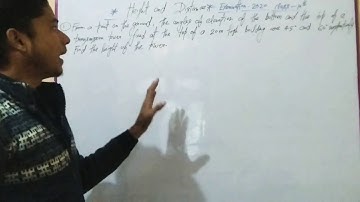 * Height and Distance * Examination 2020 class-10th
① From a point on the ground, the angles of elevation of the bottom and the top of a
transmission tower fixed at the top of a 20m high building are 45° and 60° respectively
Find the height of the tower.